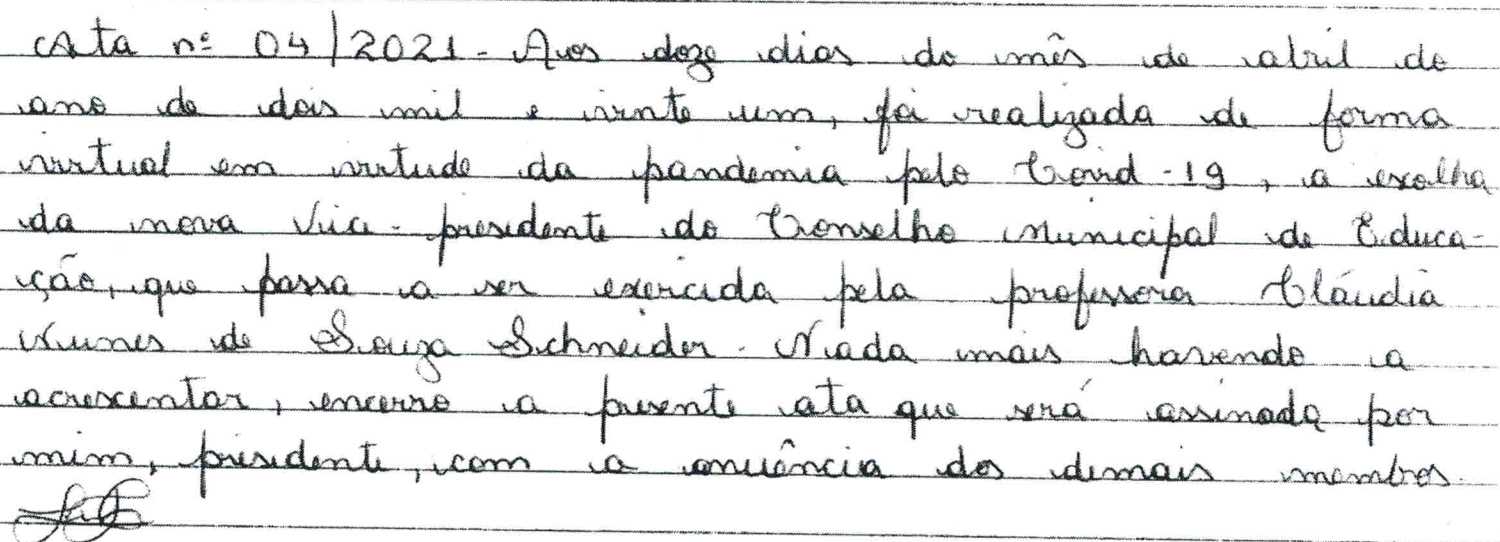 Ata nº 04/2021 - Aos doze dias do mês de abril do
ano de dois mil e vinte um, foi realizada de forma
virtual em virtude da pandemia pelo Covid-19, a escolha
da nova Vice-presidente do Conselho Municipal de Educa-
ção, que passa a ser exercida pela professora Cláudia
Nunes de Souza Schneider. Nada mais havendo a
acrescentar, encerro a presente ata que será assinada por
mim, presidente, com a anuência dos demais membros.